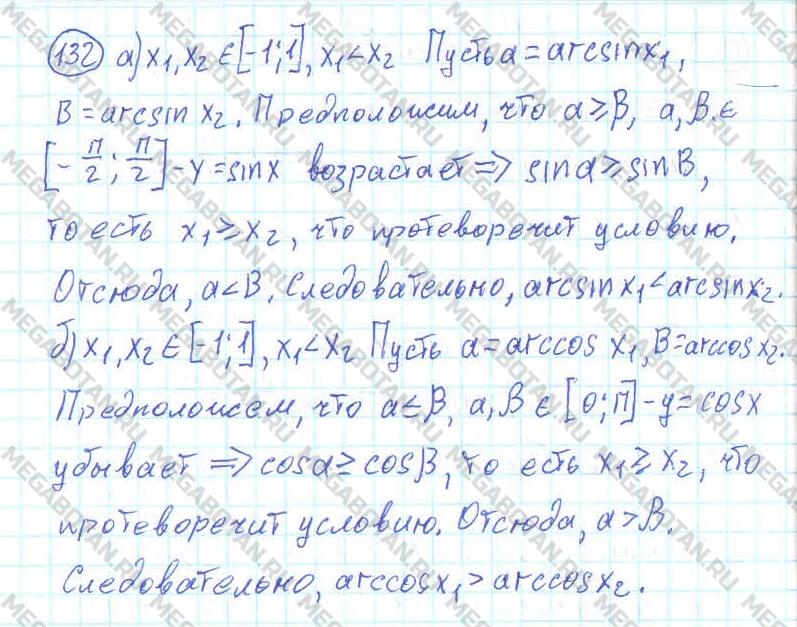 132 а) x₁, x₂ ∈ [-1; 1], x₁ < x₂ Пусть a = arcsin x₁,
B = arcsin x₂. Предположим, что a ≥ β, a, β ∈
[-π/2; π/2] - y = sinx возрастает ⇒ sin a ≥ sin B,
то есть x₁ ≥ x₂, что протеворечит условию.
Отсюда, a < B. Следовательно, arcsin x₁ < arcsin x₂.
б) x₁, x₂ ∈ [-1; 1], x₁ < x₂ Пусть a = arccos x₁, B = arccos x₂.
Предположем, что a ≤ β, a, β ∈ [0; π] - y = cosx
убывает ⇒ cos a ≥ cos β, то есть x₁ ≥ x₂, что
протеворечит условию. Отсюда, a > B.
Следовательно, arccos x₁ > arccos x₂.
MEGABOTAN.RU